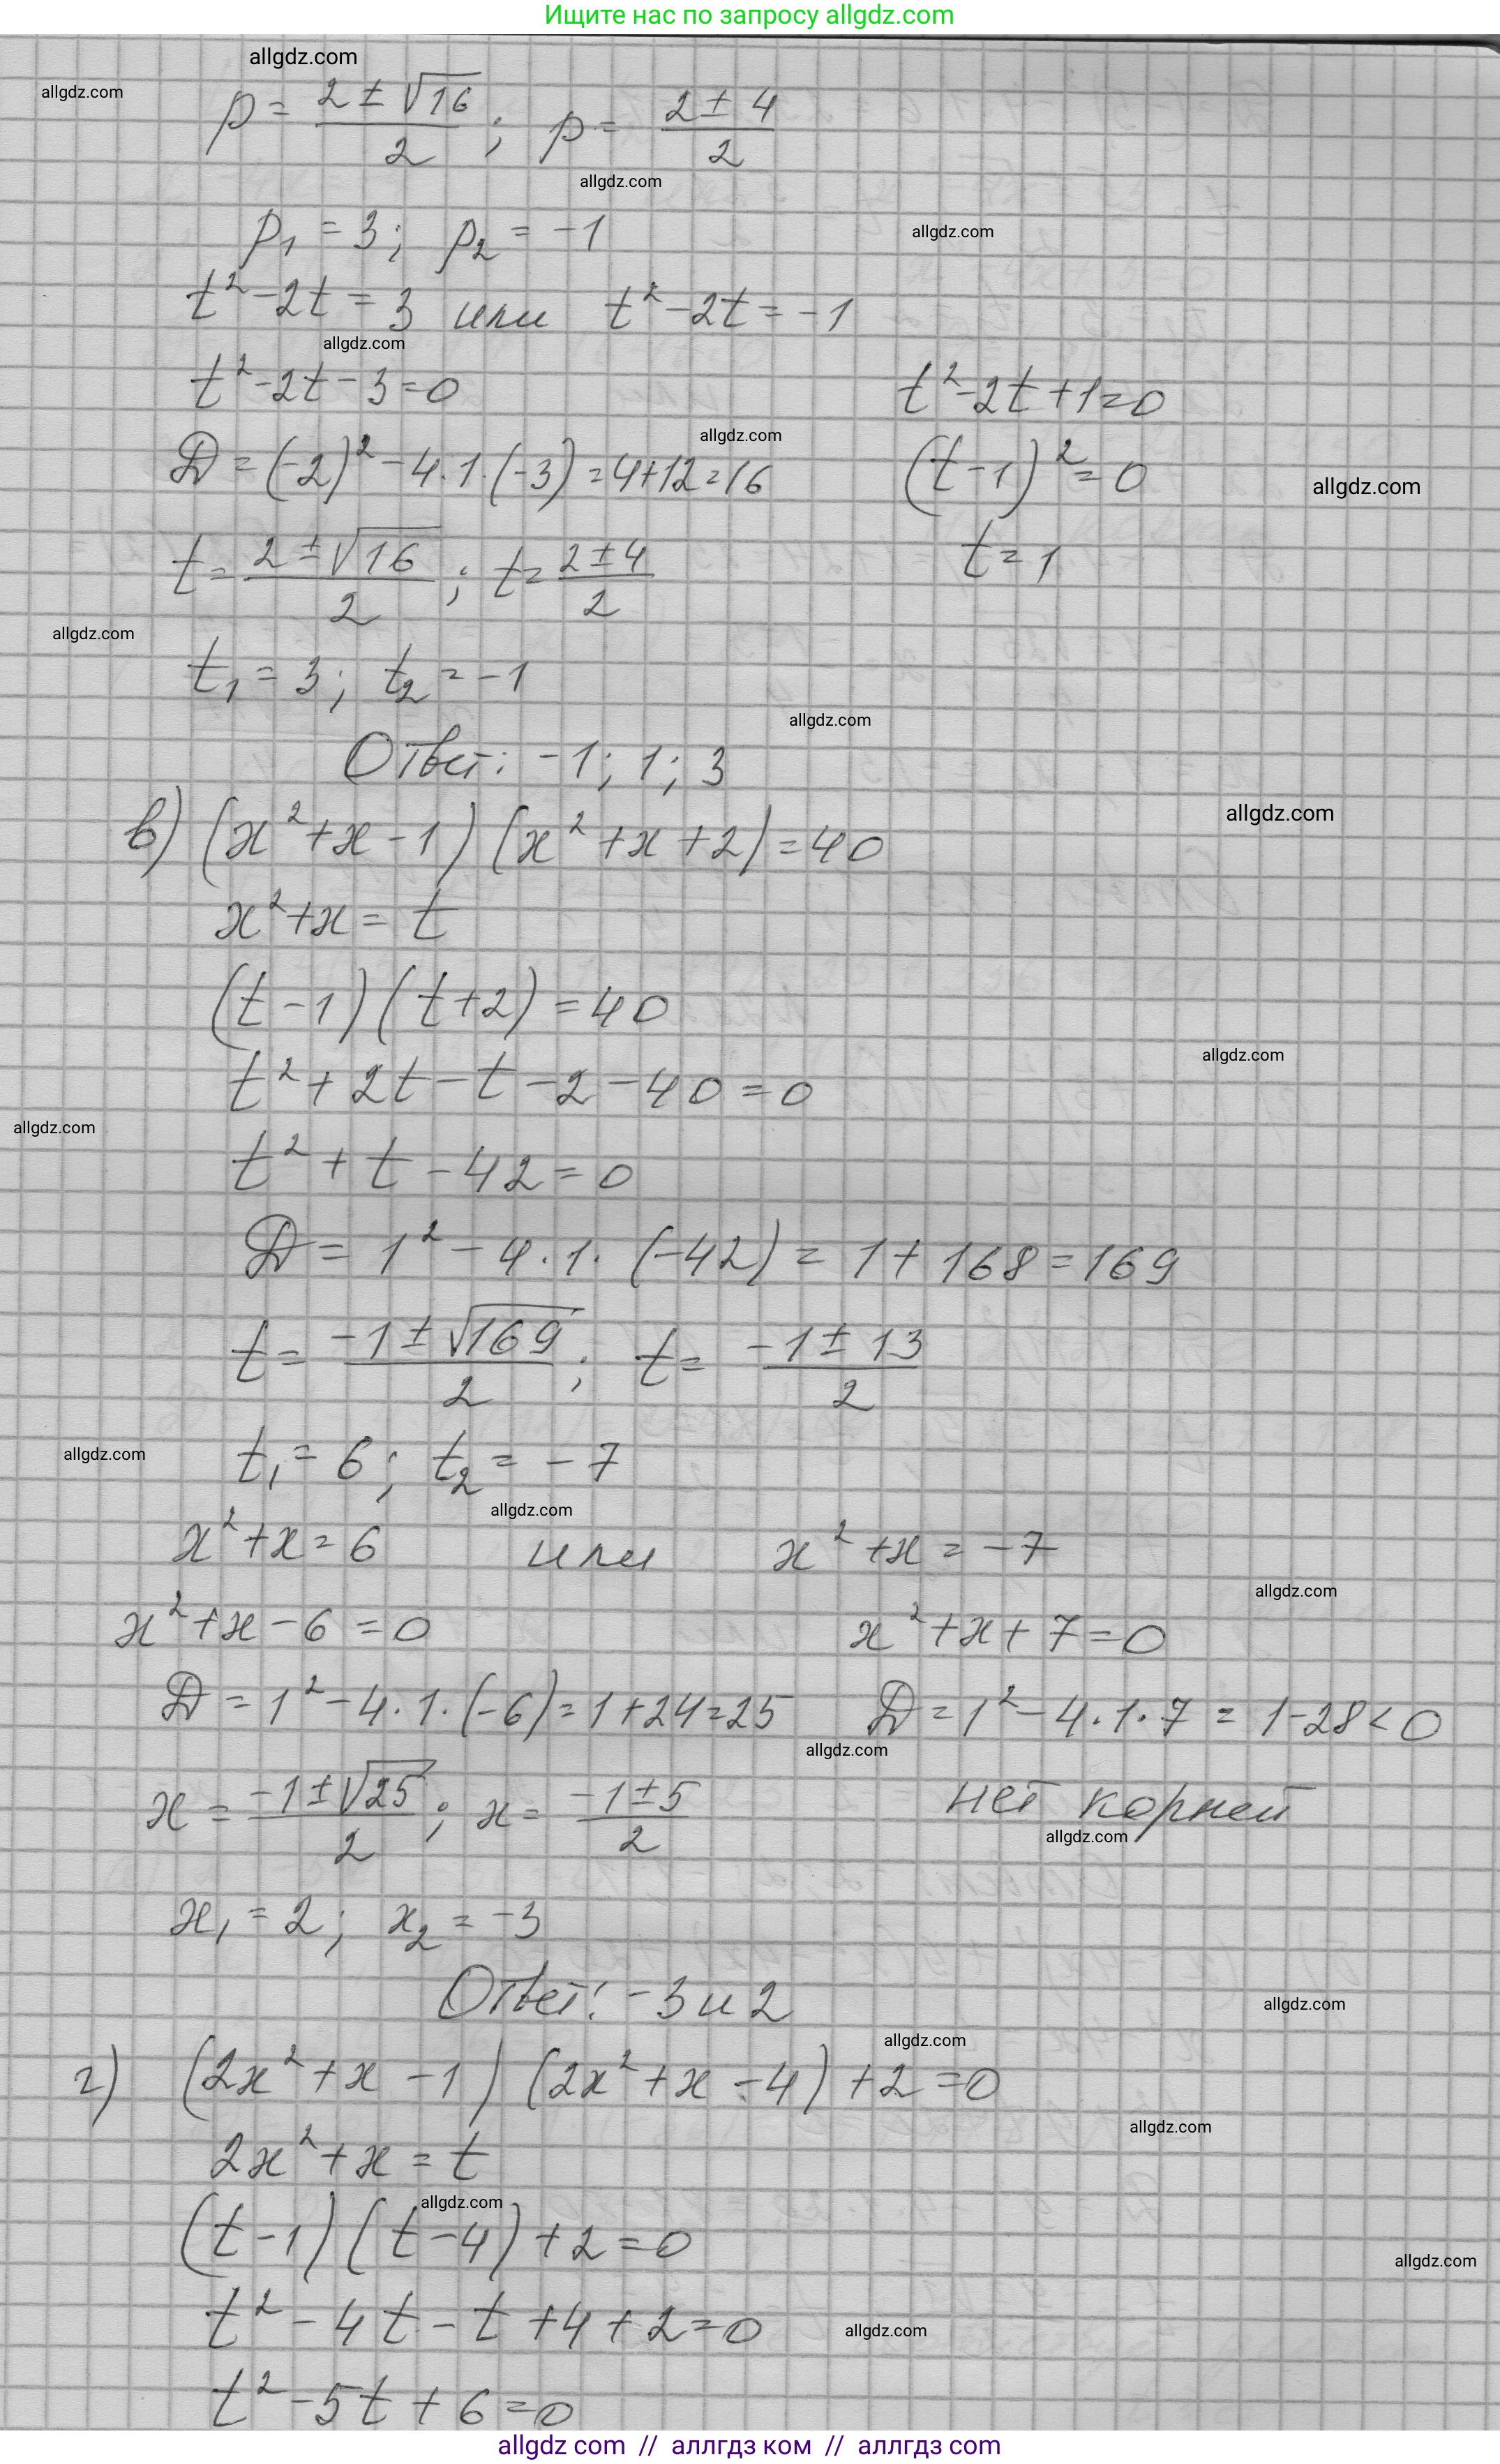 Ищите нас по запросу allgdz.com
allgdz.com
allgdz.com
p = (2 ± √16)/2 ; p = (2 ± 4)/2
allgdz.com
p₁ = 3; p₂ = -1
allgdz.com
t² - 2t = 3 или t² - 2t = -1
allgdz.com
t² - 2t - 3 = 0 t² - 2t + 1 = 0
allgdz.com
D = (-2)² - 4·1·(-3) = 4+12 = 16 (t - 1)² = 0
allgdz.com
t = (2 ± √16)/2 ; t = (2 ± 4)/2 t = 1
allgdz.com
t₁ = 3; t₂ = -1
allgdz.com
Ответ: -1; 1; 3
allgdz.com
в) (x² + x - 1)(x² + x + 2) = 40
x² + x = t
(t - 1)(t + 2) = 40
allgdz.com
t² + 2t - t - 2 - 40 = 0
allgdz.com
t² + t - 42 = 0
D = 1² - 4·1·(-42) = 1 + 168 = 169
t = (-1 ± √169)/2 ; t = (-1 ± 13)/2
allgdz.com
t₁ = 6; t₂ = -7
allgdz.com
x² + x = 6 или x² + x = -7
allgdz.com
x² + x - 6 = 0 x² + x + 7 = 0
D = 1² - 4·1·(-6) = 1 + 24 = 25 D = 1² - 4·1·7 = 1 - 28 < 0
allgdz.com
x = (-1 ± √25)/2 ; x = (-1 ± 5)/2 нет корней
allgdz.com
x₁ = 2; x₂ = -3
Ответ: -3 и 2
allgdz.com
allgdz.com
г) (2x² + x - 1)(2x² + x - 4) + 2 = 0
allgdz.com
2x² + x = t
allgdz.com
(t - 1)(t - 4) + 2 = 0
allgdz.com
t² - 4t - t + 4 + 2 = 0
allgdz.com
t² - 5t + 6 = 0
allgdz com // аллгдз ком // аллгдз com